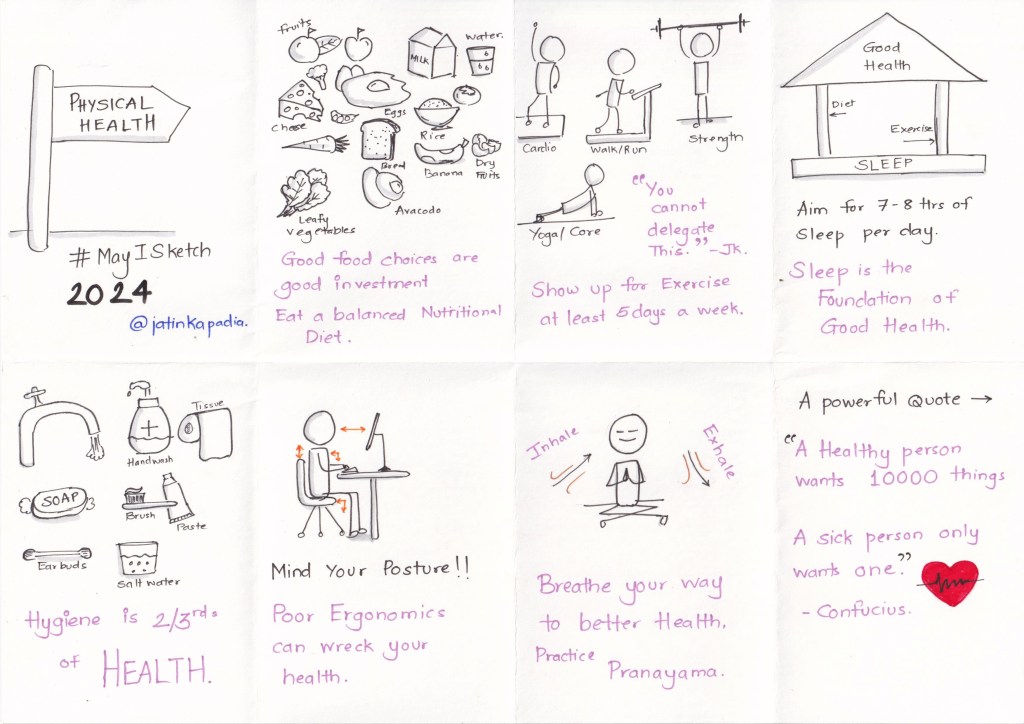 PHYSICAL
HEALTH
#MayISketch
2024
@jatinkapadia.
fruits
MILK
water.
Cheese
Eggs
Rice
Bread
Banana
Dry
fruits
Leafy
vegetables
Avacodo
Good food choices are
good investment
Eat a balanced Nutritional
Diet.
Cardio
Walk/Run
Strength
Yoga/Core
"You
cannot
delegate
This." -JK.
Show up for Exercise
at least 5 days a week.
Good
Health
Diet
Exercise
SLEEP
Aim for 7-8 Hrs of
Sleep per day.
Sleep is the
Foundation of
Good Health.
Handwash
Tissue
SOAP
Brush
Paste
Earbuds
Salt water
Hygiene is 2/3rds
of HEALTH.
Mind Your Posture!!
Poor Ergonomics
can wreck your
health.
Inhale
Exhale
Breathe your way
to better Health.
Practice
Pranayama.
A powerful Quote →
"A Healthy person
wants 10000 things
A sick person only
wants one."
- Confucius.